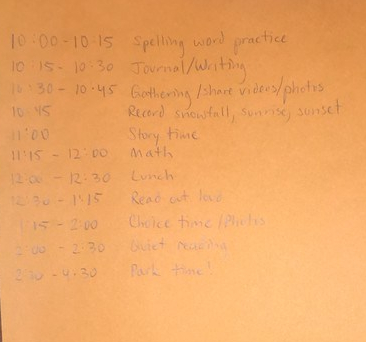 10:00-10:15 Spelling word practice
10:15-10:30 Journal/Writing
10:30-10:45 Gathering/share videos/photos
10:45 Record snowfall, sunrise, sunset
11:00 Story time
11:15-12:00 Math
12:00-12:30 Lunch
12:30-1:15 Read out loud
1:15-2:00 Choice time/Photos
2:00-2:30 Quiet reading
2:30-4:30 Park time!